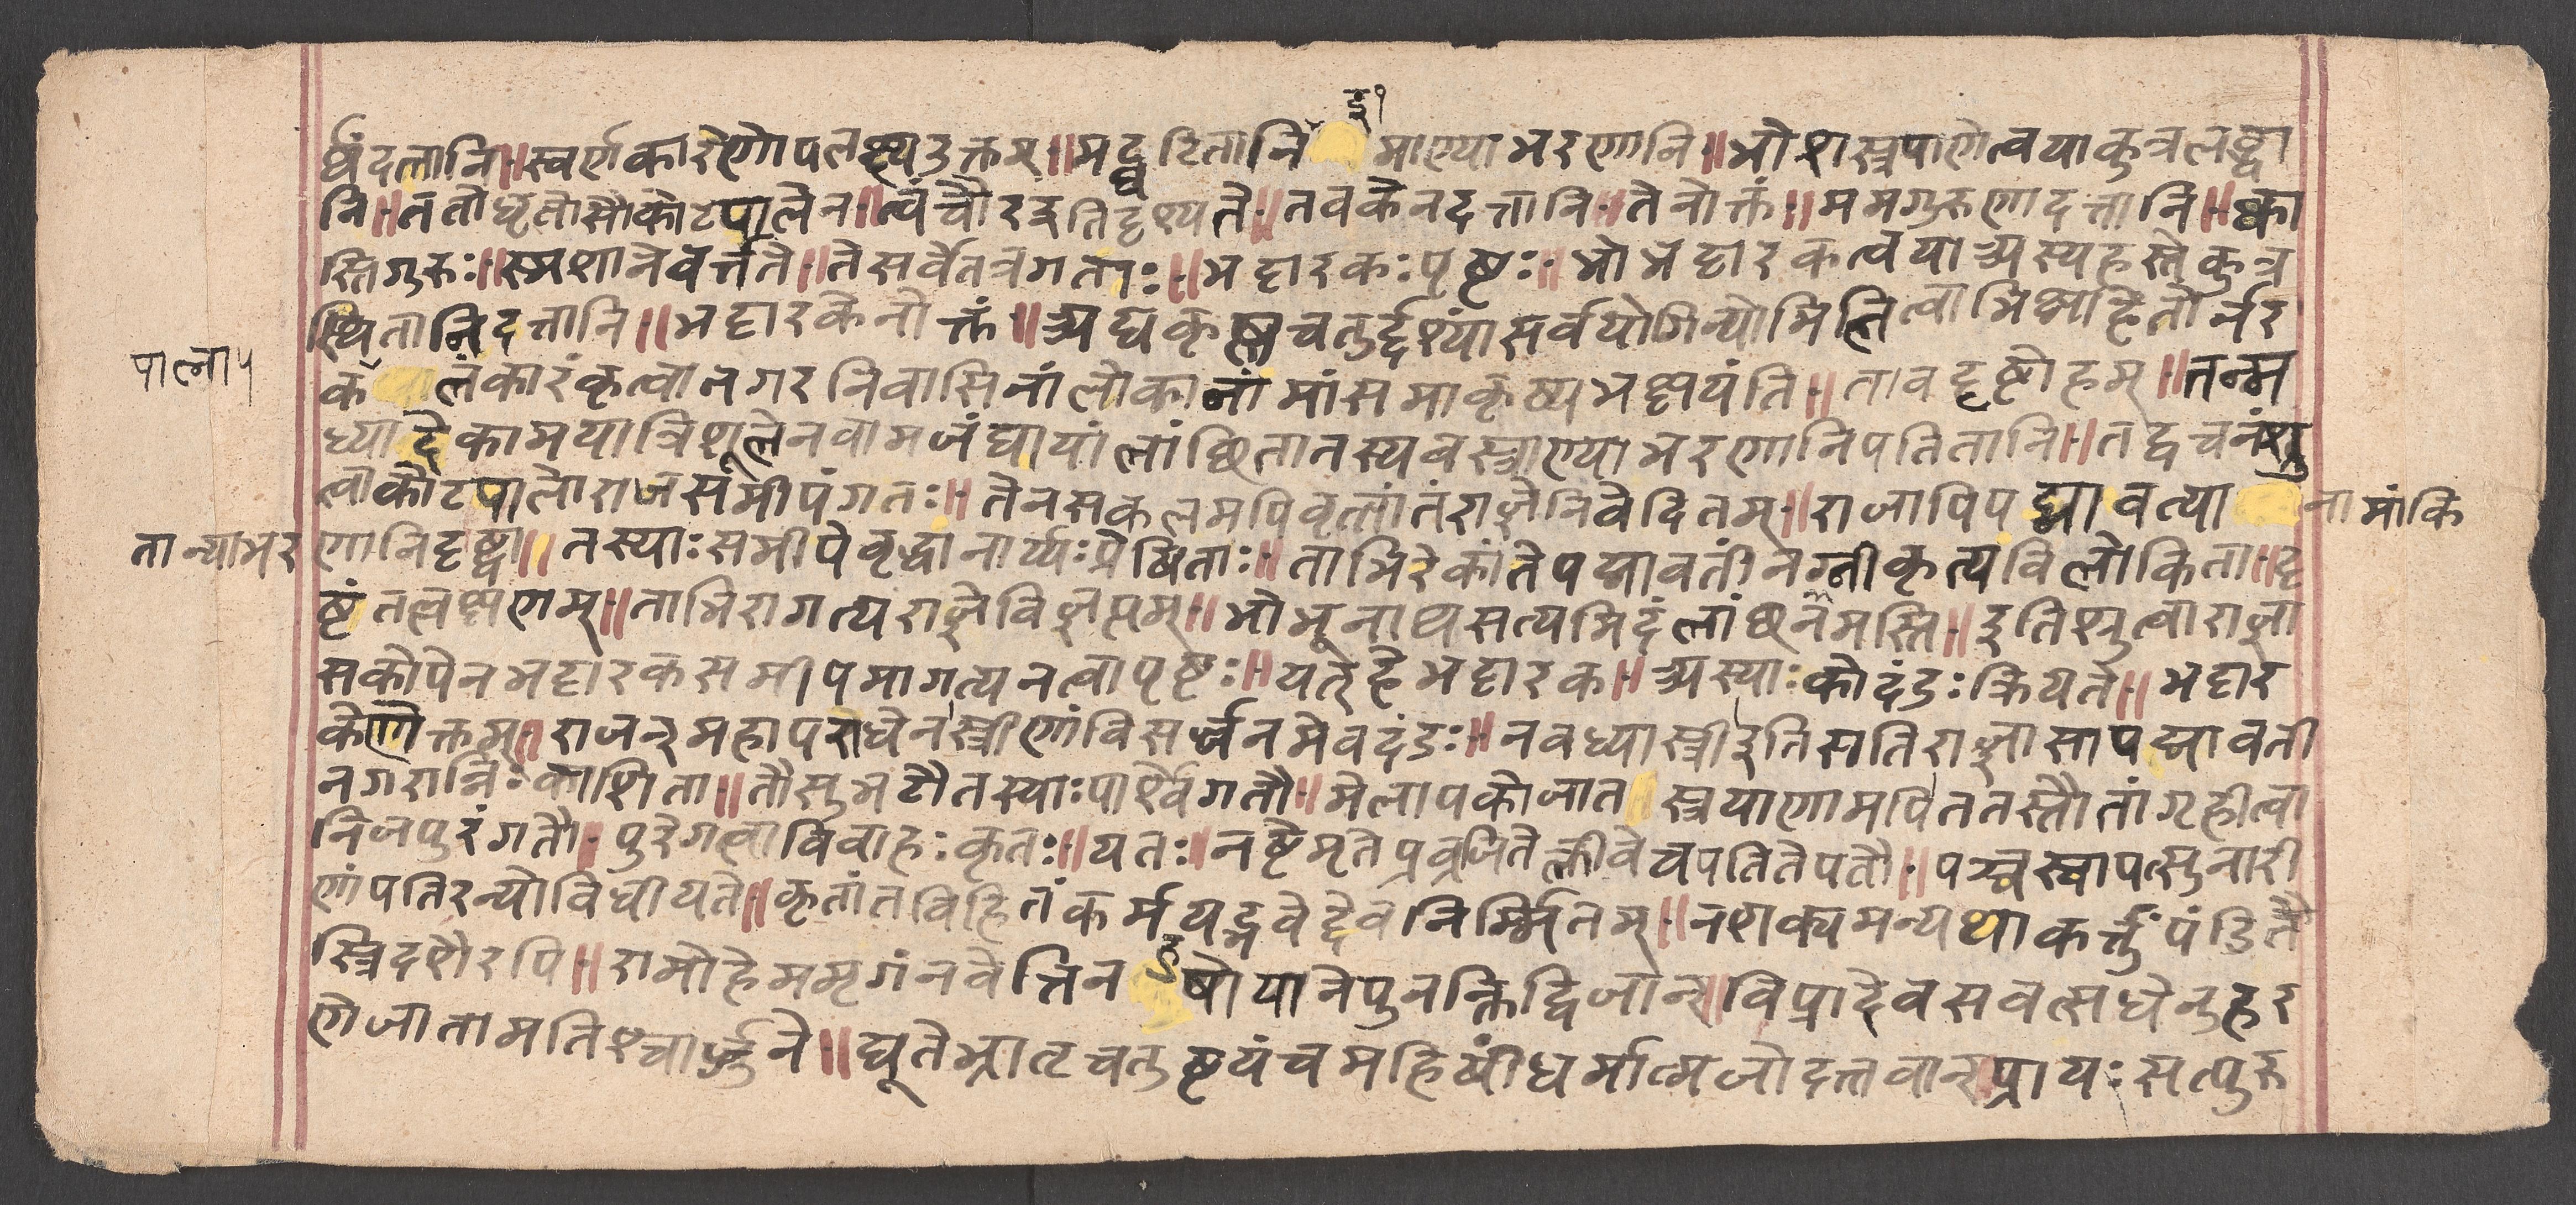 र्थंदत्तानि॥स्वर्णकारेणोपलक्ष्यउक्तम्॥मद्घटितानि इमाण्याभरणानि॥भोशस्त्रपाणेत्वयाकुत्रलब्धा
नि॥ततोधृतोसौकोटपालेन॥त्वंचौरइतिदृश्यते॥तवकेनदत्तानि॥तेनोक्तं॥ममगुरुणादत्तानि॥क्वा
स्तिगुरुः॥स्मशानेवर्त्तते॥तेसर्वेतत्रगताः॥भट्टारकःपृष्टः॥भोभट्टारकत्वयाअस्यहस्तेकुत्र
स्थितानिदत्तानि॥भट्टारकेनोक्तं॥अद्यकृष्णचतुर्द्दश्यांसर्वयोगिन्योमिलित्वाभिक्षाहेतोर्नर
क पालालंकारंकृत्वानगरनिवासिनांलोकानांमांसमाकृष्यभक्षयंति॥तावदृष्टोहम्॥तन्म
ध्यादेकामयात्रिशूलेनवामजंघायांलांछितातस्यवस्त्राण्याभरणानिपतितानि॥तद्वचनंश्रु
त्वाकोटपालोराजसमीपंगतः॥तेनसकलमपिवृत्तांतंराज्ञेनिवेदितम्॥राजापिपद्मावत्या नामांकि
तान्याभरणानिदृष्ट्वा॥तस्याःसमीपेवृद्धानार्य्यःप्रेषिताः॥ताभिरेकांतेपद्मावतीनग्नीकृत्यविलोकिता॥दृ
ष्टंतल्लक्षणम्॥ताभिरागत्यराज्ञेविज्ञप्तम्॥भोभूनाथसत्यमिदंलांछनमस्ति॥इतिश्रुत्वाराज्ञा
सकोपेनभट्टारकसमीपमागत्यनत्वापृष्टः॥यत्हेभट्टारक॥अस्याःकोदंडःक्रियते॥भट्टार
केणोक्तम्॥राजन्महापराधेनस्त्रीणांविसर्ज्जनमेवदंडः॥नवध्यास्त्रीइतिसतिराज्ञासापद्मावती
नगरान्निःकाशिता॥तौसुभटौतस्याःपार्श्वेगतौ॥मेलापकोजात स्त्रयाणामपिततस्तौतांगृहीत्वा
निजपुरंगतौ॥पुरेगत्वाविवाहःकृतः॥यतः॥नष्टेमृतेप्रव्रजितेक्लीवेचपतितेपतौ॥पञ्चस्वापत्सुनारी
णांपतिरन्योविधीयते॥कृतांतविहितंकर्मयद्भवेद्देवनिर्म्मितम्॥नशक्यमन्यथाकर्त्तुंपंडितै
स्त्रिदशैरपि॥रामोहेममृगंनवेत्तिन हुषोयानेपुनक्तिद्विजान्॥विप्रादेवसवत्सधेनुहर
णेजातामतिश्चार्ज्जुने॥द्यूतेभ्रातृचतुष्टयंचमहिषींधर्मात्मजोदत्तवान्प्रायःसत्पुरु